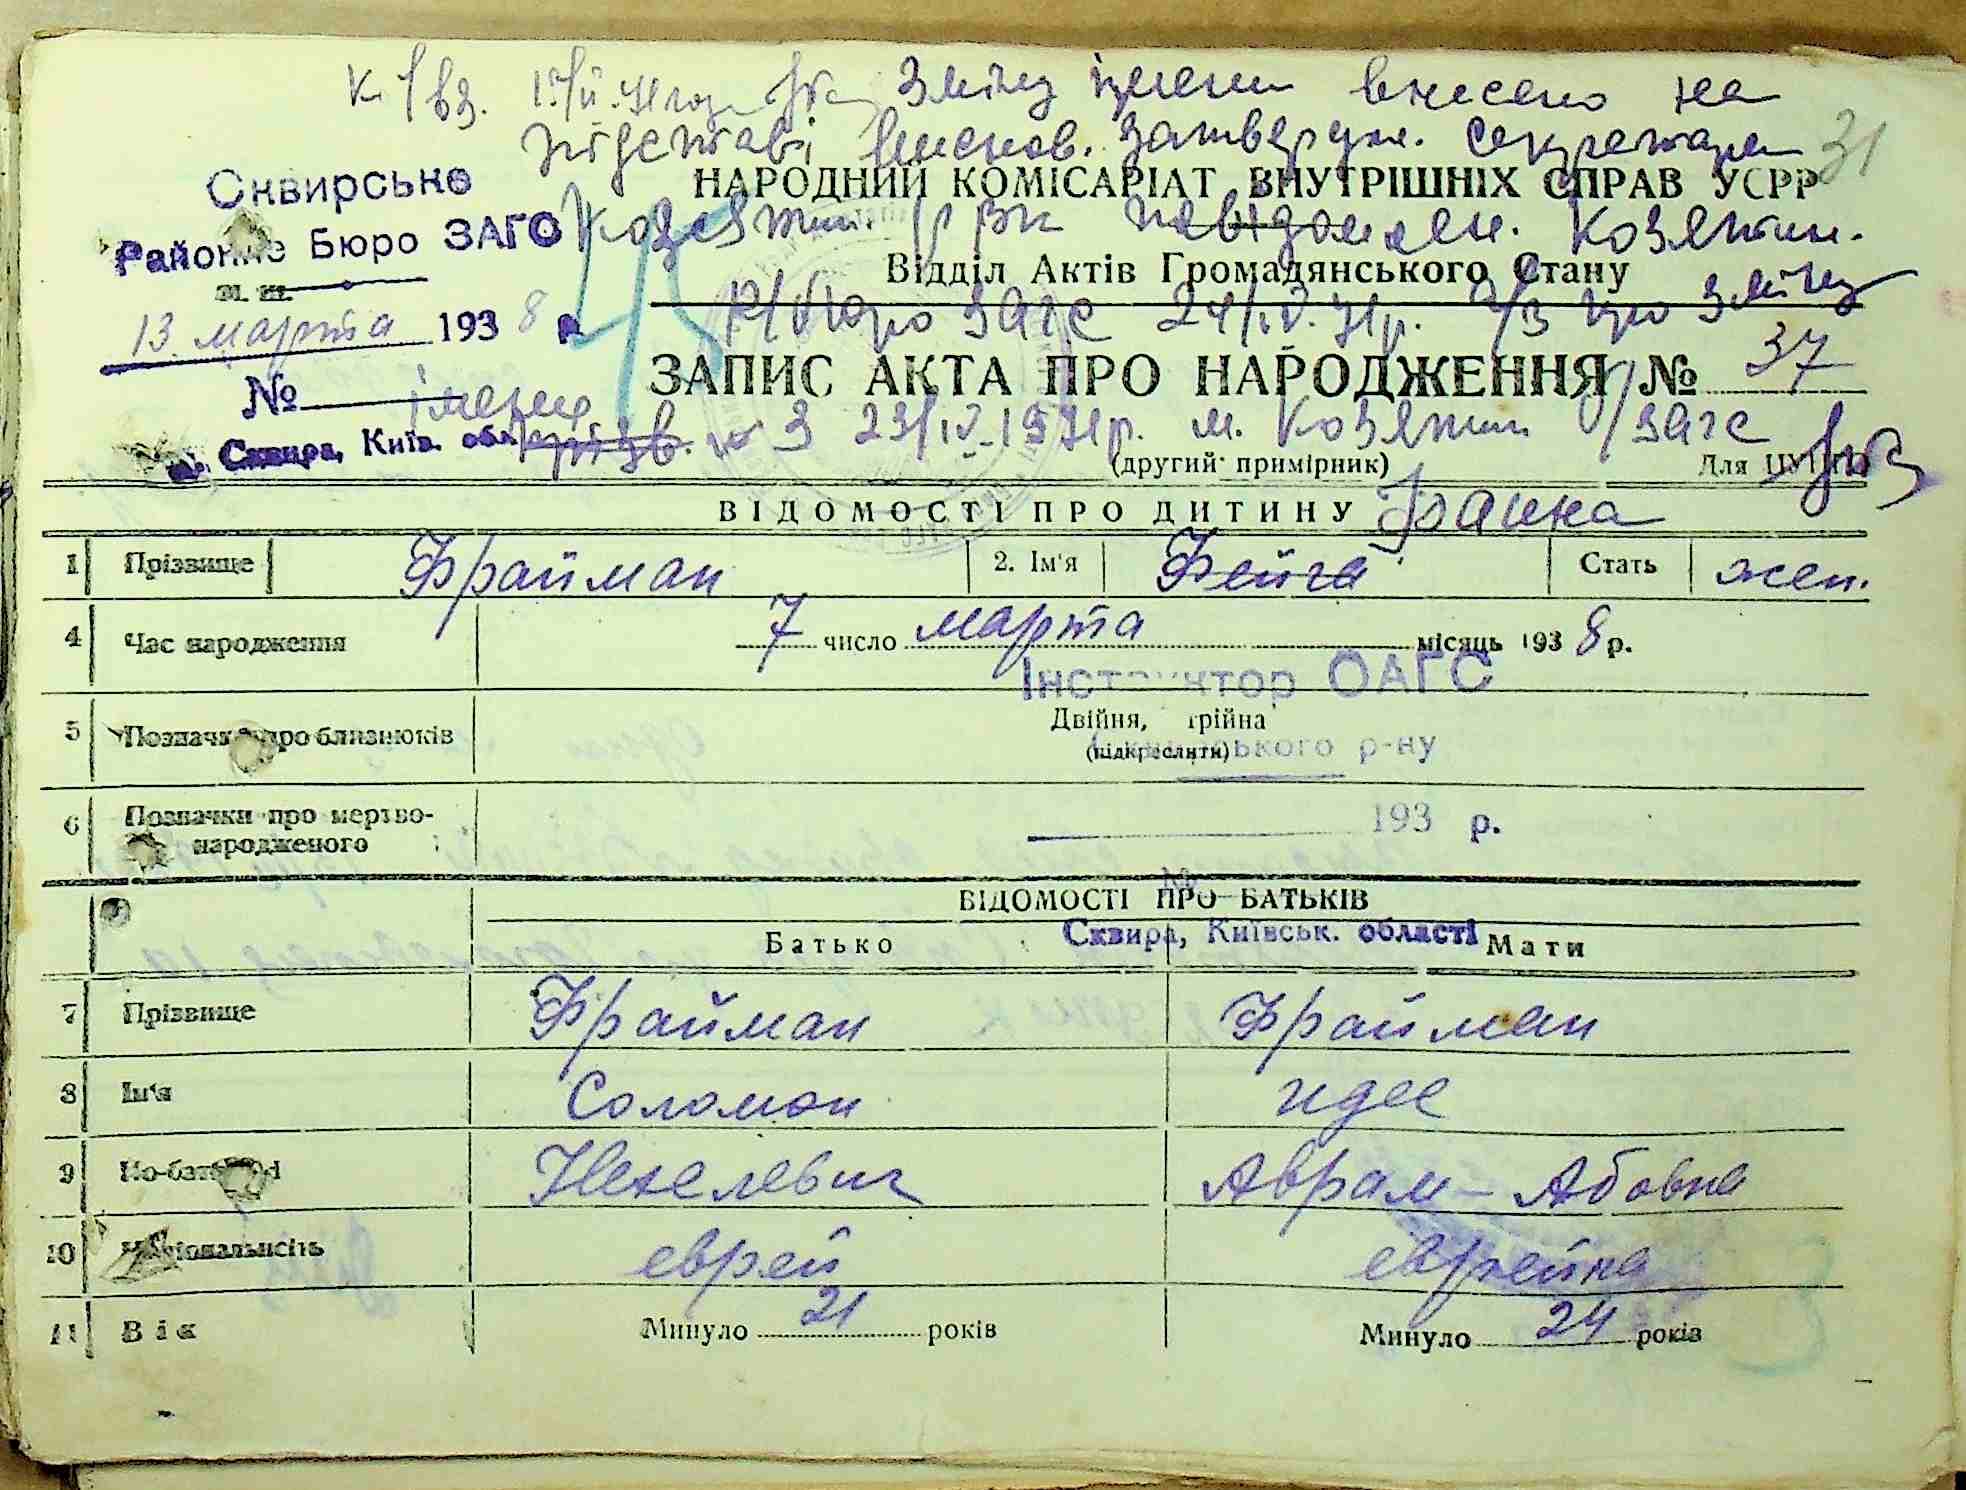 Зміну імени внесено на
підставі висновк. затвердж. секретарем 31
Сквирське
Районне Бюро ЗАГС
НАРОДНИЙ КОМІСАРІАТ ВНУТРІШНІХ СПРАВ УСРР
Козятин. РВК повідомлен. Козятин.
Відділ Актів Громадянського Стану
Р/бюро ЗАГС 24/IV. 71р. про зміну
13 марта 1938 р.
ЗАПИС АКТА ПРО НАРОДЖЕННЯ № 37
№
імени
м. Сквира, Київ. обл. прізв. 23/IV. 1971р. м. Козятин ЗАГС
(другий примірник) Для
ВІДОМОСТІ ПРО ДИТИНУ Фаина
1 Прізвище Фрайман 2. Ім'я Фейга Стать жен.
4 Час народження 7 число марта місяць 1938 р.
Інструктор ОАГС
5 Позначки про близнюків Двійня, трійна
(підкреслити)
р-ну
6 Позначки про мертво-
народженого
193 р.
ВІДОМОСТІ ПРО БАТЬКІВ
Сквира, Київськ. області
Батько Мати
7 Прізвище Фрайман Фрайман
8 Ім'я Соломон Идес
9 По-батькові Аврам-Абовна
10 Національність еврей еврейка
11 Вік Минуло 21 років Минуло 24 років